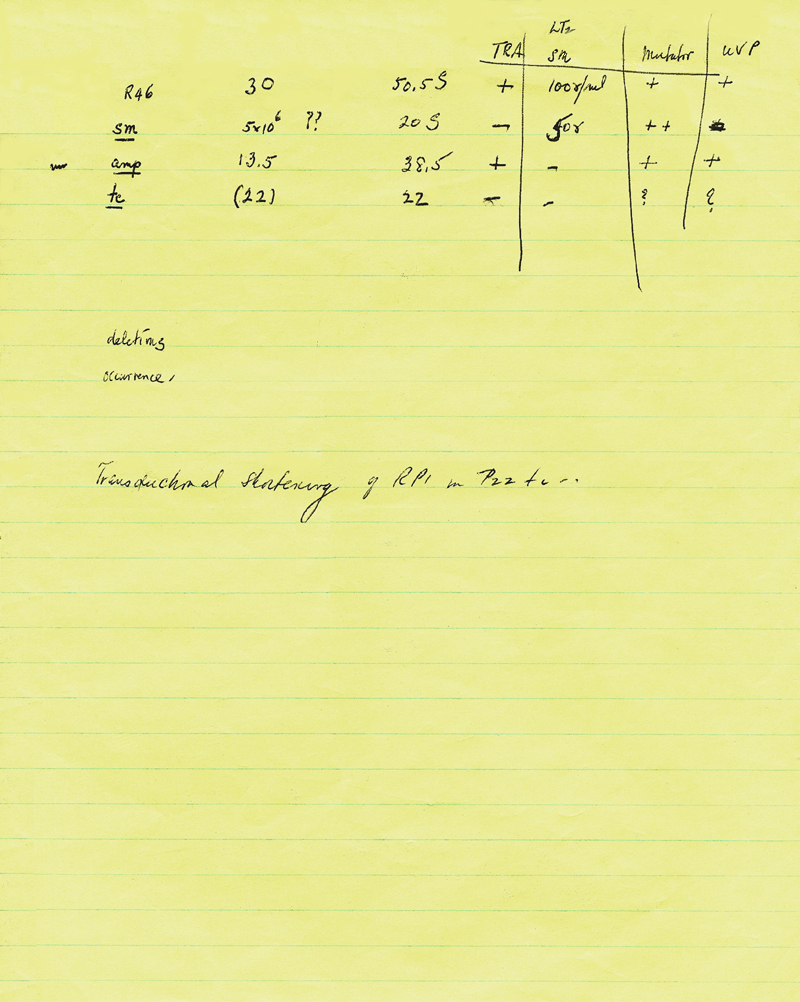 LT2
TRA sm mutator UVP
R46 30 50.5S + 100γ/ml + +
sm 5x10⁶ ?? 20S - 50γ ++
amp 13.5 38.5 + - + +
tc (22) 22 - - ? ?
deleting
occurrence
Transductional shortening of RP1 in P22 tc...